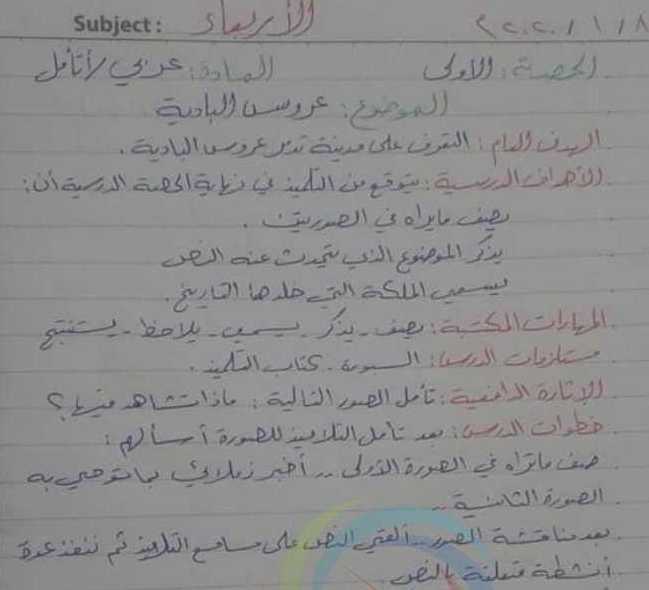 Subject: الأربعاء ٢٠٢٠/١/٨
الحصة: الأولى المادة: عربي /أتأمل
الموضوع: عروس البادية
الهدف العام: التعرف على مدينة تدمر عروس البادية.
الأهداف الدرسية: يتوقع من التلميذ في نهاية الحصة الدرسية أن:
يصف مايراه في الصورتين.
يذكر الموضوع الذي يتحدث عنه النص
يسمي الملكة التي خلدها التاريخ.
المهارات المكتسبة: يصف - يذكر - يسمي - يلاحظ - يستنتج
مستلزمات الدرس: السبورة - كتاب التلميذ.
الإثارة الدافعية: تأمل الصور التالية: ماذا تشاهد فيها؟
خطوات الدرس: بعد تأمل التلاميذ للصورة أسألهم:
صف ماتراه في الصورة الأولى .. أخبر زملائي بما توحي به
الصورة الثانية ..
بعد مناقشة الصور .. ألقي النص على مسامع التلاميذ ثم ننفذ عدة
أنشطة متعلقة بالنص.